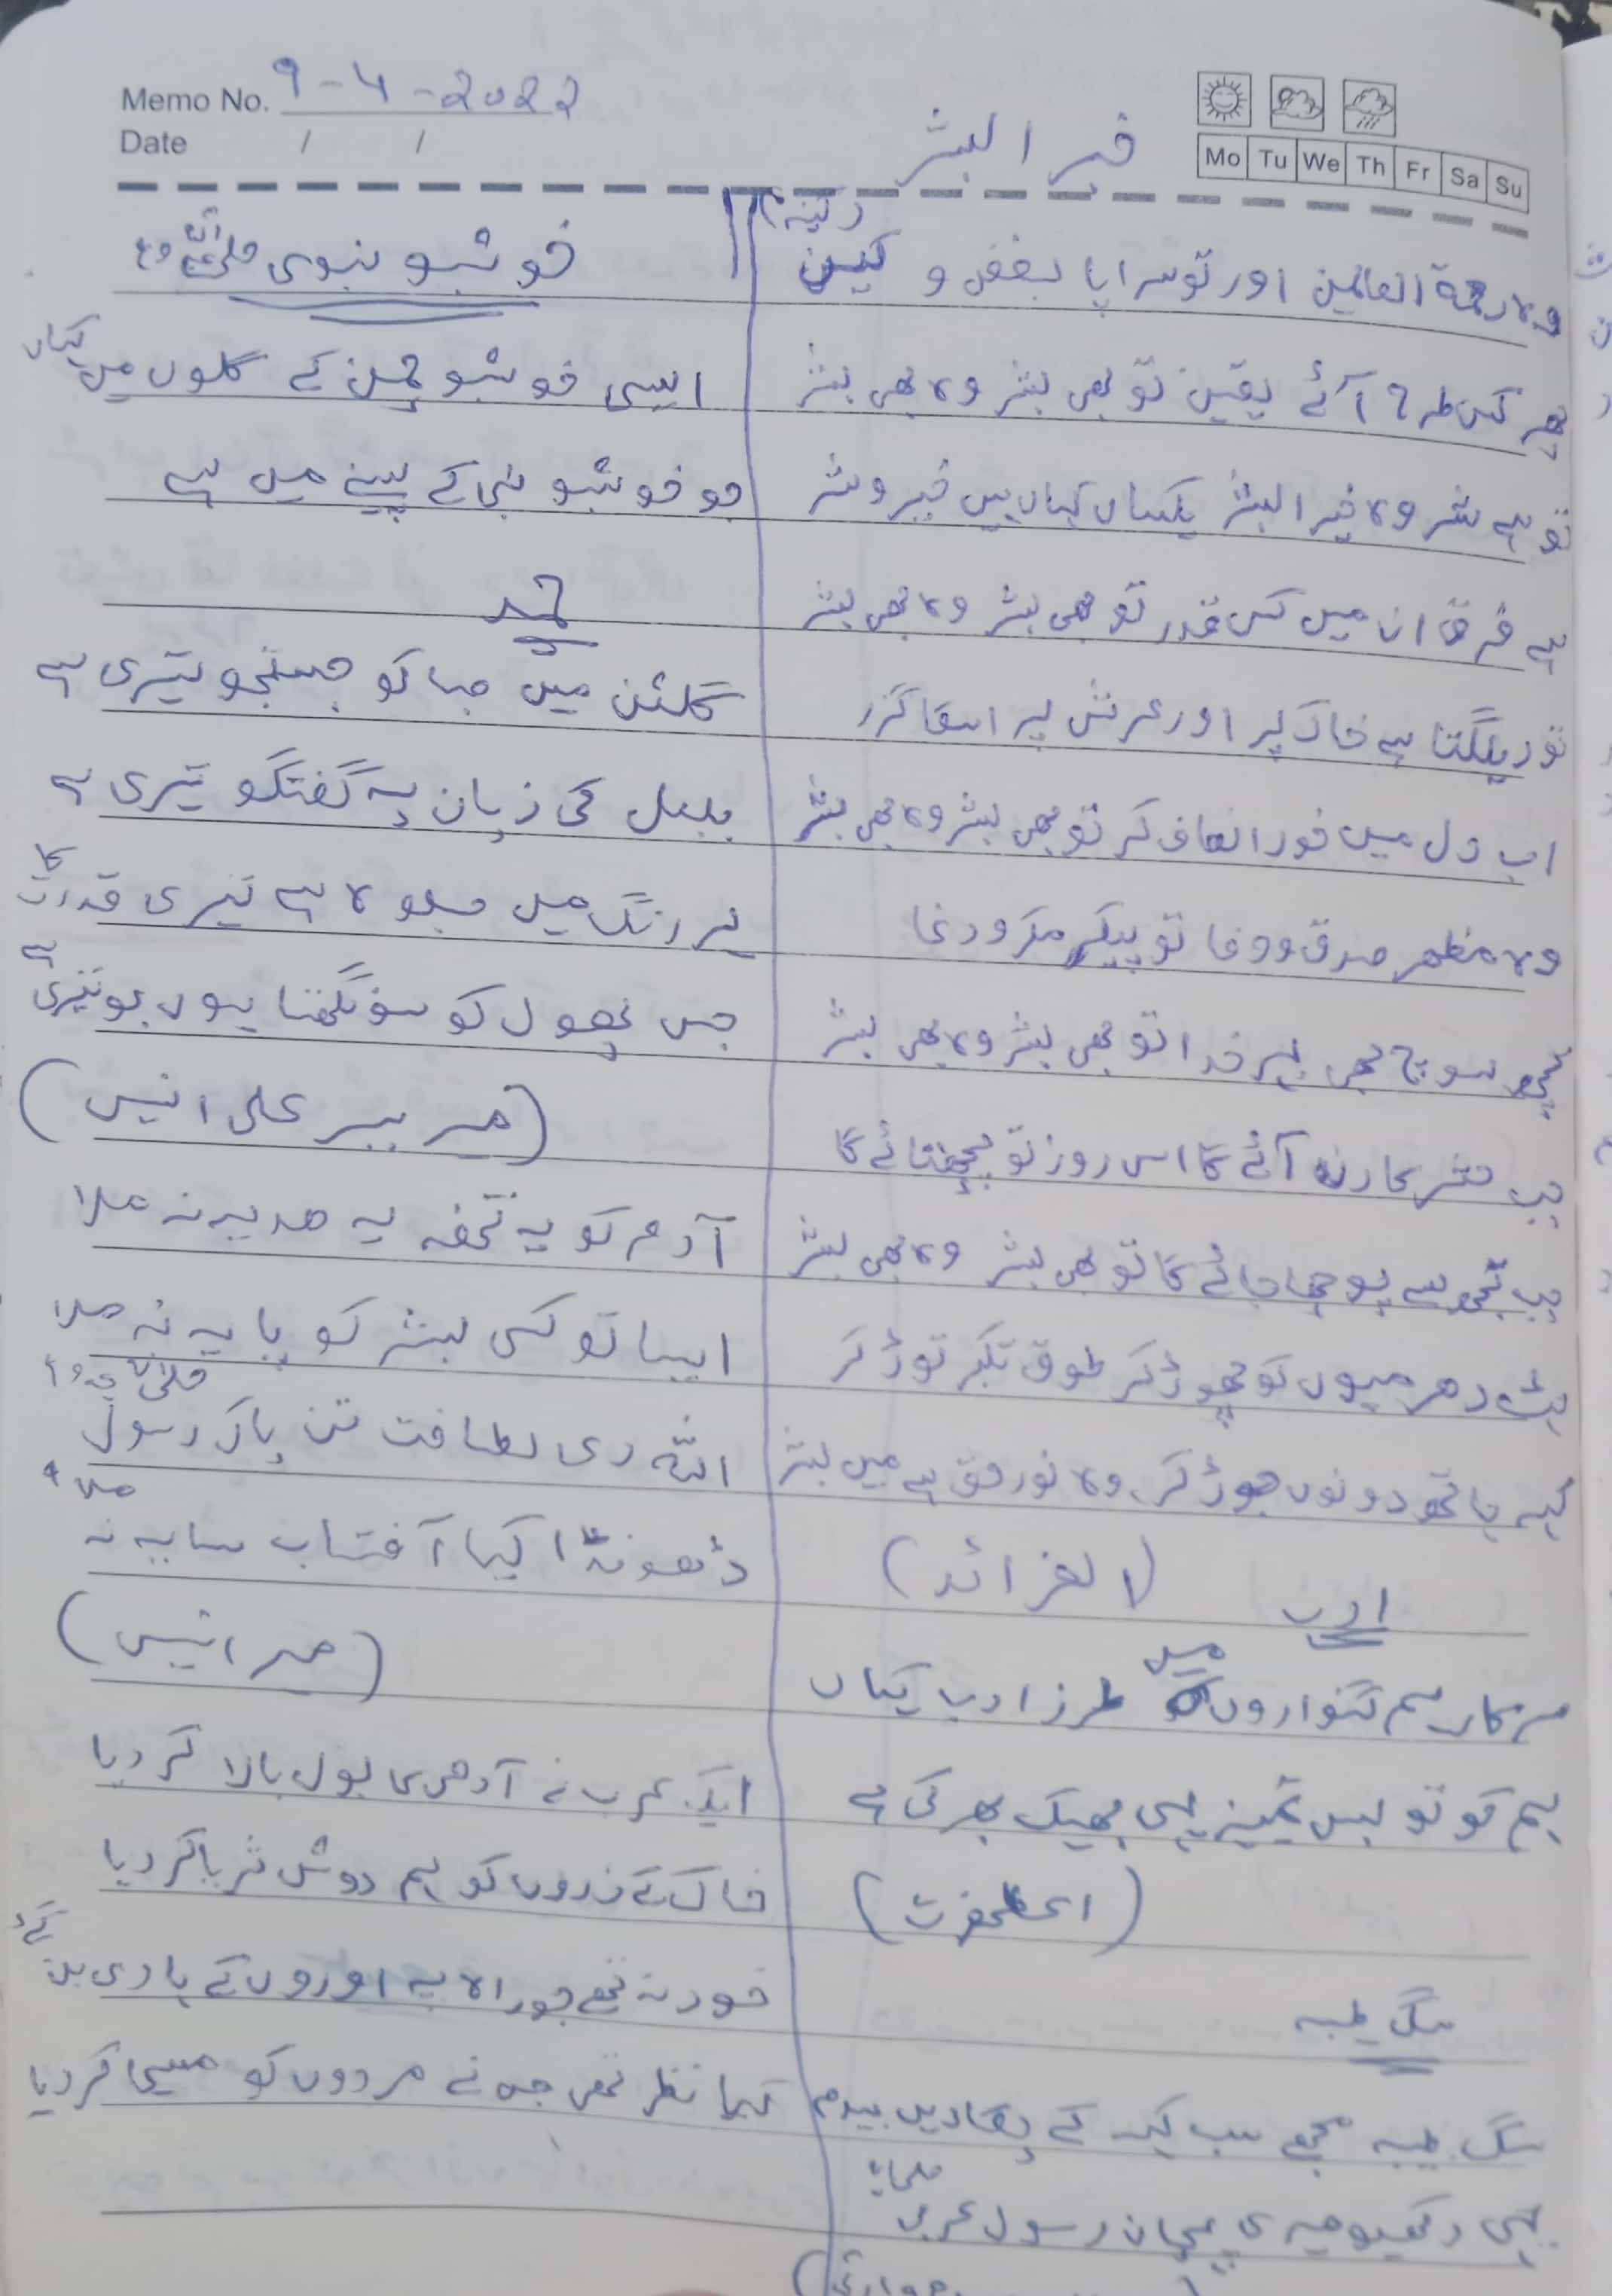 Memo No. 9-4-2022
Date / /
Mo Tu We Th Fr Sa Su
خیر البشر
(کینہ)
وہ رحمۃ العالمین اور تو سراپا بغض و کیں
پھر کس طرح آئے یقیں تو بھی بشر وہ بھی بشر
تو ہے شر وہ خیر البشر یکساں کہاں ہیں خیر و شر
ہے فرق ان میں کس قدر تو بھی بشر وہ بھی بشر
تو رینگتا ہے خاک پر اور عرش پر اسکا گزر
اب دل میں خود انصاف کر تو بھی بشر وہ بھی بشر
وہ مظہر صدق و وفا تو پیکر مکر و دغا
کچھ سوچ بھی بہر خدا تو بھی بشر وہ بھی بشر
جب حشر کا دن آئے گا اس روز تو پچھتائے گا
جب تجھ سے پوچھا جائے گا تو بھی بشر وہ بھی بشر
ہٹ دھرمیوں کو چھوڑ کر طوق تکبر توڑ کر
کہہ ہاتھ دونوں جوڑ کر، وہ نور حق ہے میں بشر
(الفرائد)
ادب
سرکار ہم گنواروں میں طرز ادب کہاں
ہم کو تو بس تمیز یہی بھیک بھر کی ہے
(اعلحضرت)
سگ طیبہ
سگ طیبہ مجھے سب کہہ کے پکاریں بیدم
یہی رکھیو میری پہچان رسول عربی
خوشبو نبوی
ایسی خوشبو چمن کے گلوں میں کہاں
جو خوشبو نبی کے پسینے میں ہے
حمد
گلشن میں صبا کو جستجو تیری ہے
بلبل کی زبان پہ گفتگو تیری ہے
ہر رنگ میں جلوہ ہے تیری قدرت کا
جس پھول کو سونگھتا ہوں بو تیری ہے
(میر ببر علی انیس)
آدم کو یہ تحفہ یہ ہدیہ نہ ملا
ایسا تو کسی بشر کو پایہ نہ ملا
اللہ ری لطافت تن پاک رسول
ڈھونڈا کیا آفتاب سایہ نہ ملا
(میر انیس)
ایک عرب نے آدمی کا بول بالا کر دیا
خاک کے ذروں کو ہم دوش ثریا کر دیا
خود نہ تھے جو راہ پہ اوروں کے ہادی بن گئے
کیا نظر تھی جس نے مردوں کو مسیحا کر دیا